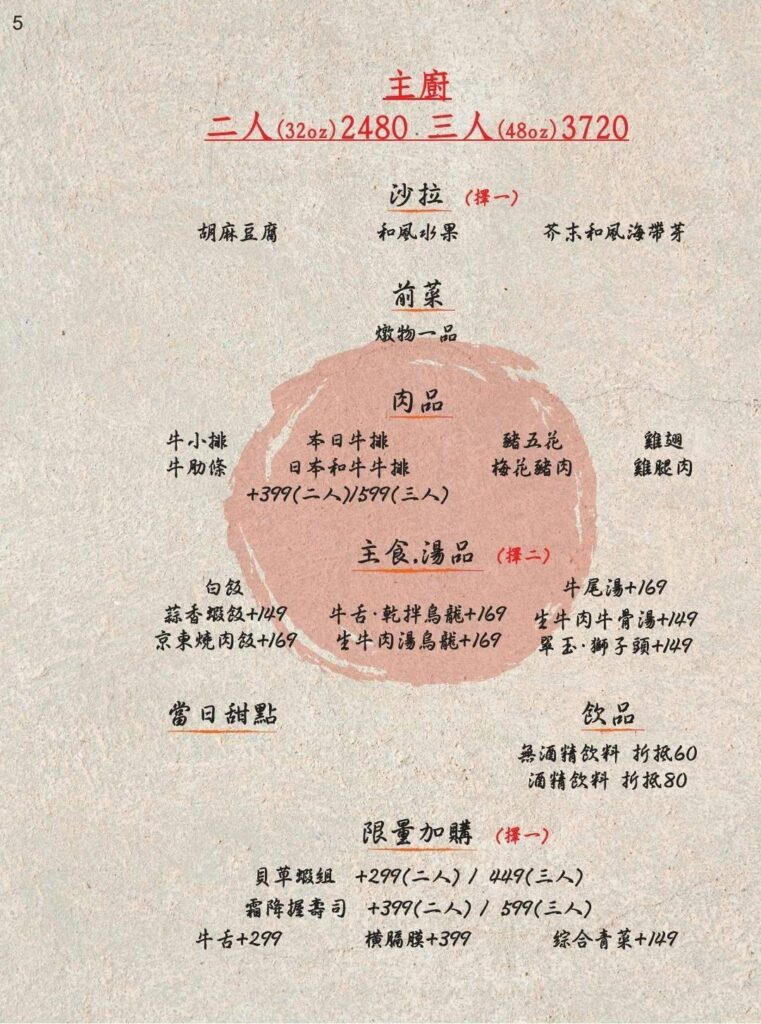 5
主廚
二人(32oz)2480.三人(48oz)3720
沙拉 (擇一)
胡麻豆腐 和風水果 芥末和風海帶芽
前菜
燉物一品
肉品
牛小排 本日牛排 豬五花 雞翅
牛肋條 日本和牛牛排 梅花豬肉 雞腿肉
+399(二人)/599(三人)
主食.湯品 (擇二)
白飯 牛尾湯+169
蒜香蝦飯+149 牛舌·乾拌烏龍+169 生牛肉牛骨湯+149
京東燒肉飯+169 生牛肉湯烏龍+169 翠玉·獅子頭+149
當日甜點 飲品
無酒精飲料 折抵60
酒精飲料 折抵80
限量加購 (擇一)
貝草蝦組 +299(二人) / 449(三人)
霜降握壽司 +399(二人) / 599(三人)
牛舌+299 橫膈膜+399 綜合青菜+149